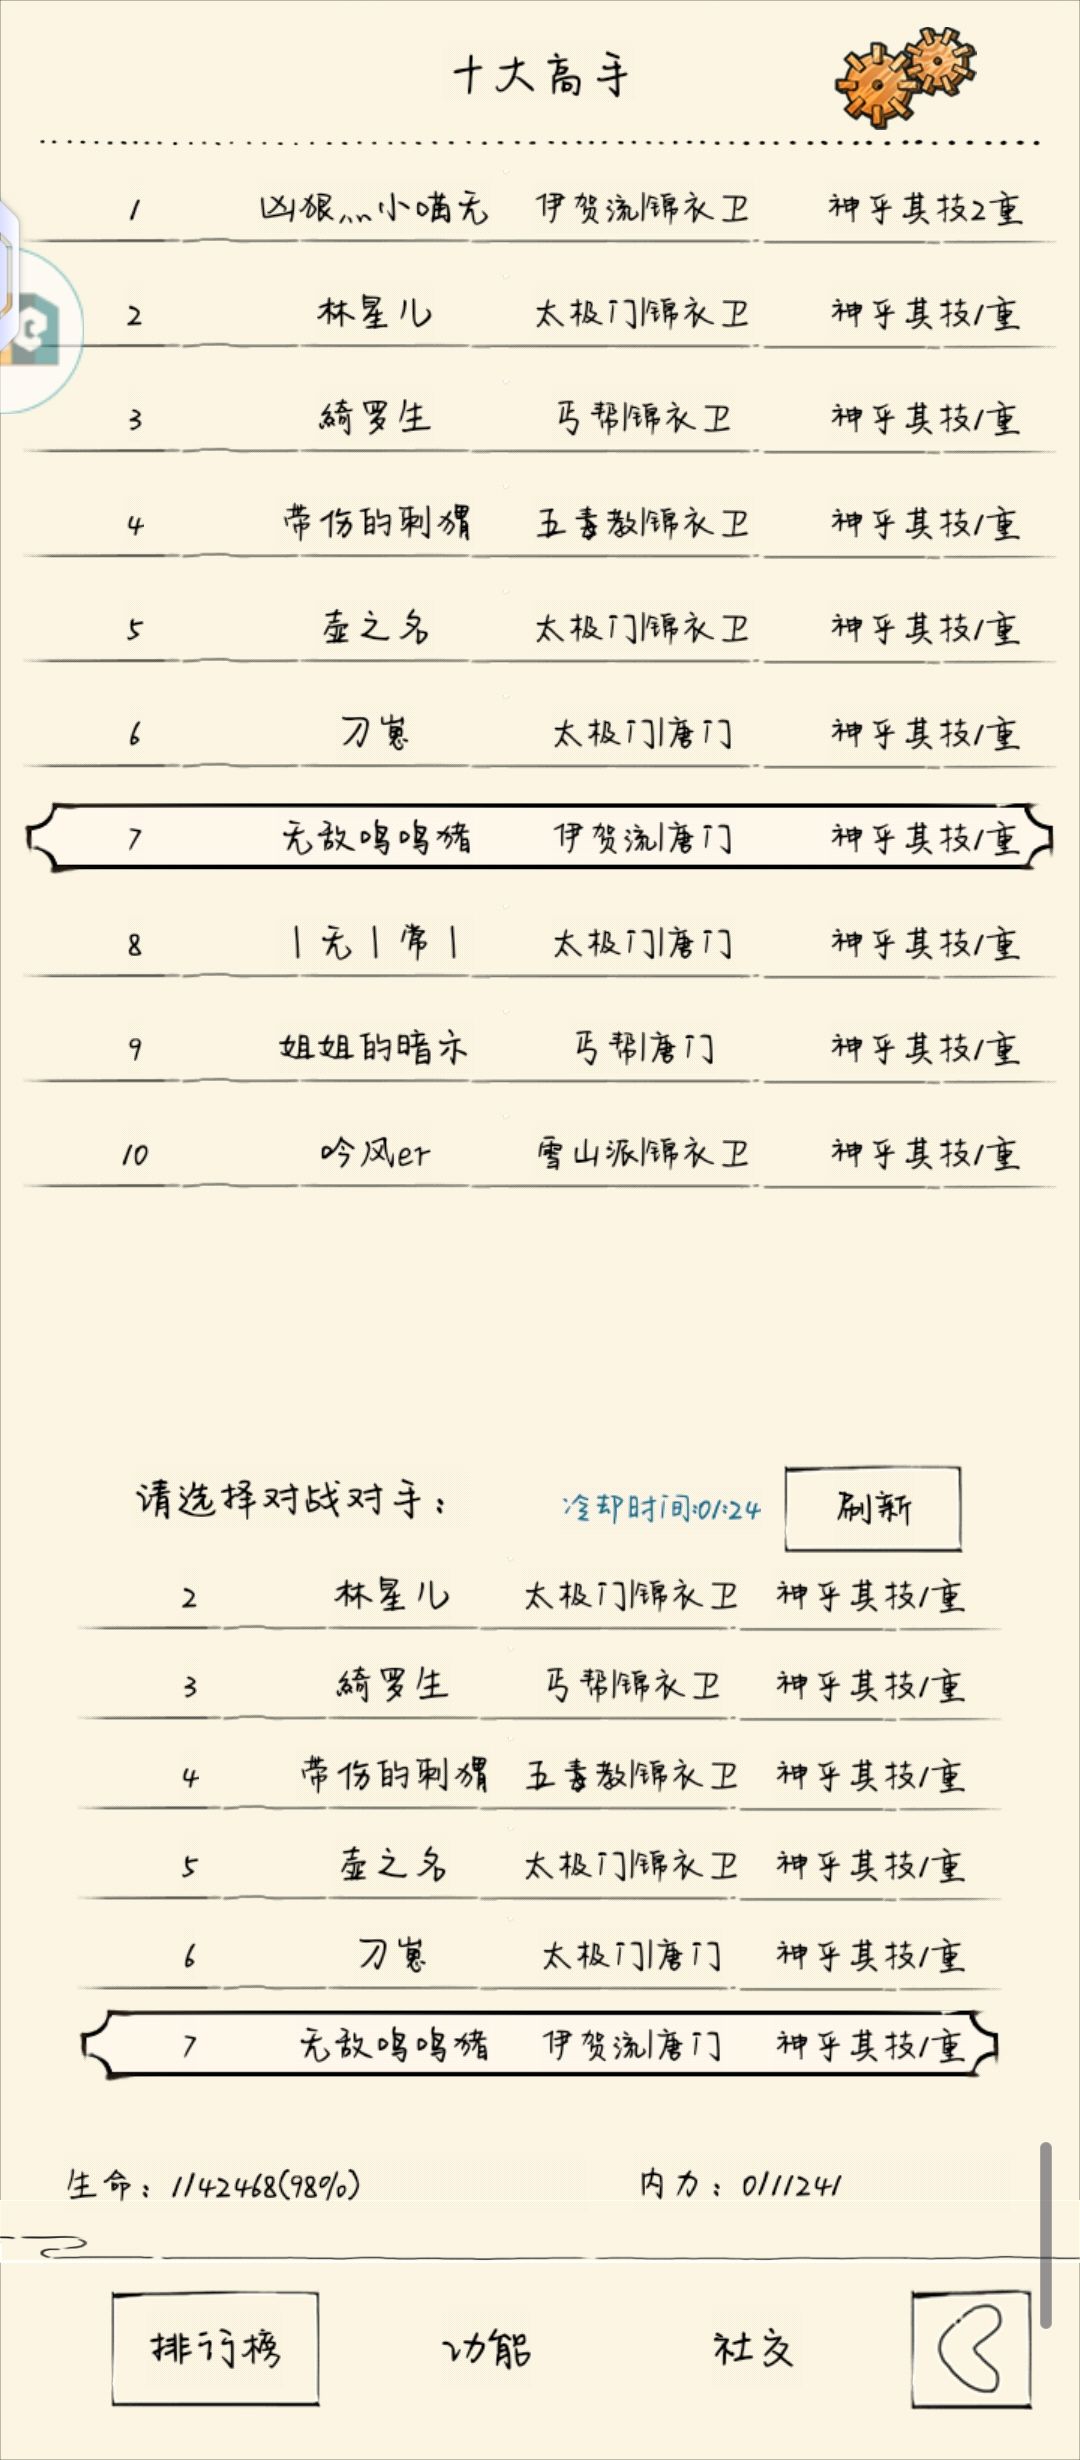 十大高手
1 凶狠灬小喵无 伊贺流|锦衣卫 神乎其技2重
2 林星儿 太极门|锦衣卫 神乎其技1重
3 綺罗生 丐帮|锦衣卫 神乎其技1重
4 带伤的刺猬 五毒教|锦衣卫 神乎其技1重
5 壶之名 太极门|锦衣卫 神乎其技1重
6 刀崽 太极门|唐门 神乎其技1重
7 无敌呜呜猪 伊贺流|唐门 神乎其技1重
8 丨无丨常丨 太极门|唐门 神乎其技1重
9 姐姐的暗示 丐帮|唐门 神乎其技1重
10 吟风er 雪山派|锦衣卫 神乎其技1重
请选择对战对手： 冷却时间:01:24 刷新
2 林星儿 太极门|锦衣卫 神乎其技1重
3 綺罗生 丐帮|锦衣卫 神乎其技1重
4 带伤的刺猬 五毒教|锦衣卫 神乎其技1重
5 壶之名 太极门|锦衣卫 神乎其技1重
6 刀崽 太极门|唐门 神乎其技1重
7 无敌呜呜猪 伊贺流|唐门 神乎其技1重
生命：1142468(98%) 内力：0/11241
排行榜 功能 社交